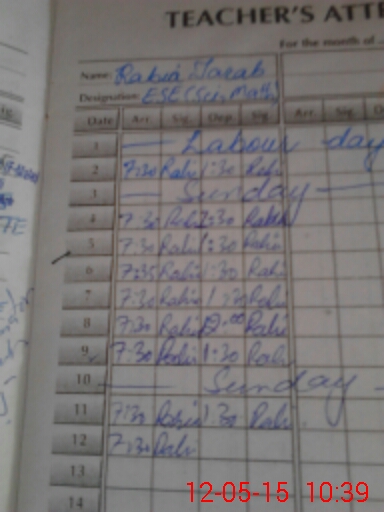 TEACHER'S ATTE
For the month of
Name: Rabia
Designation: ESE (Sci, Math)
Date Arr. Sig. Dep. Sig. Arr. Sig.
1 — Labour day
2 7:30 Rabi 1:30 Rabi
3 — Sunday —
4 7:30 Rabi 1:30 Rabi
5 7:30 Rabi 1:30 Rabi
6 7:35 Rabi 1:30 Rabi
7 7:30 Rabi 1:30 Rabi
8 7:30 Rabi 12:00 Rabi
9 7:30 Rabi 1:30 Rabi
10 — Sunday —
11 7:30 Rabi 1:30 Rabi
12 7:30 Rabi
13
14
12-05-15 10:39